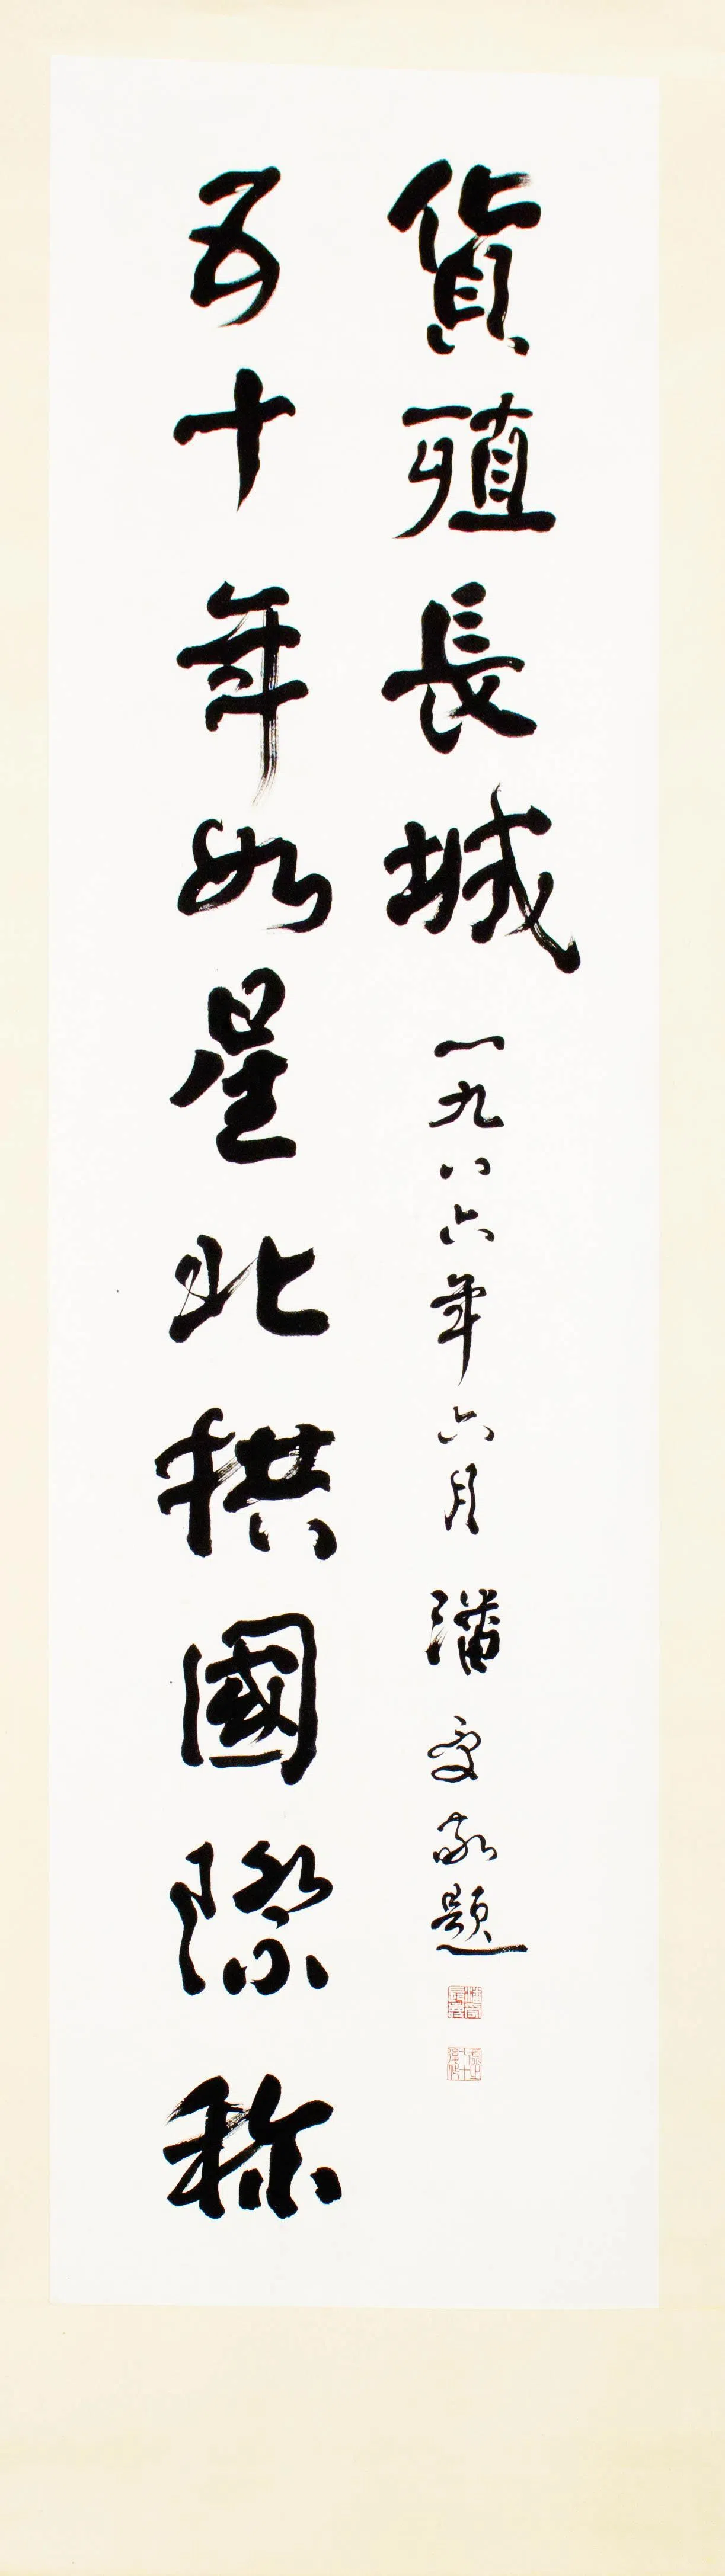 五十年如星北拱國際称
貨殖長城 一九八六年六月 潘受敬題